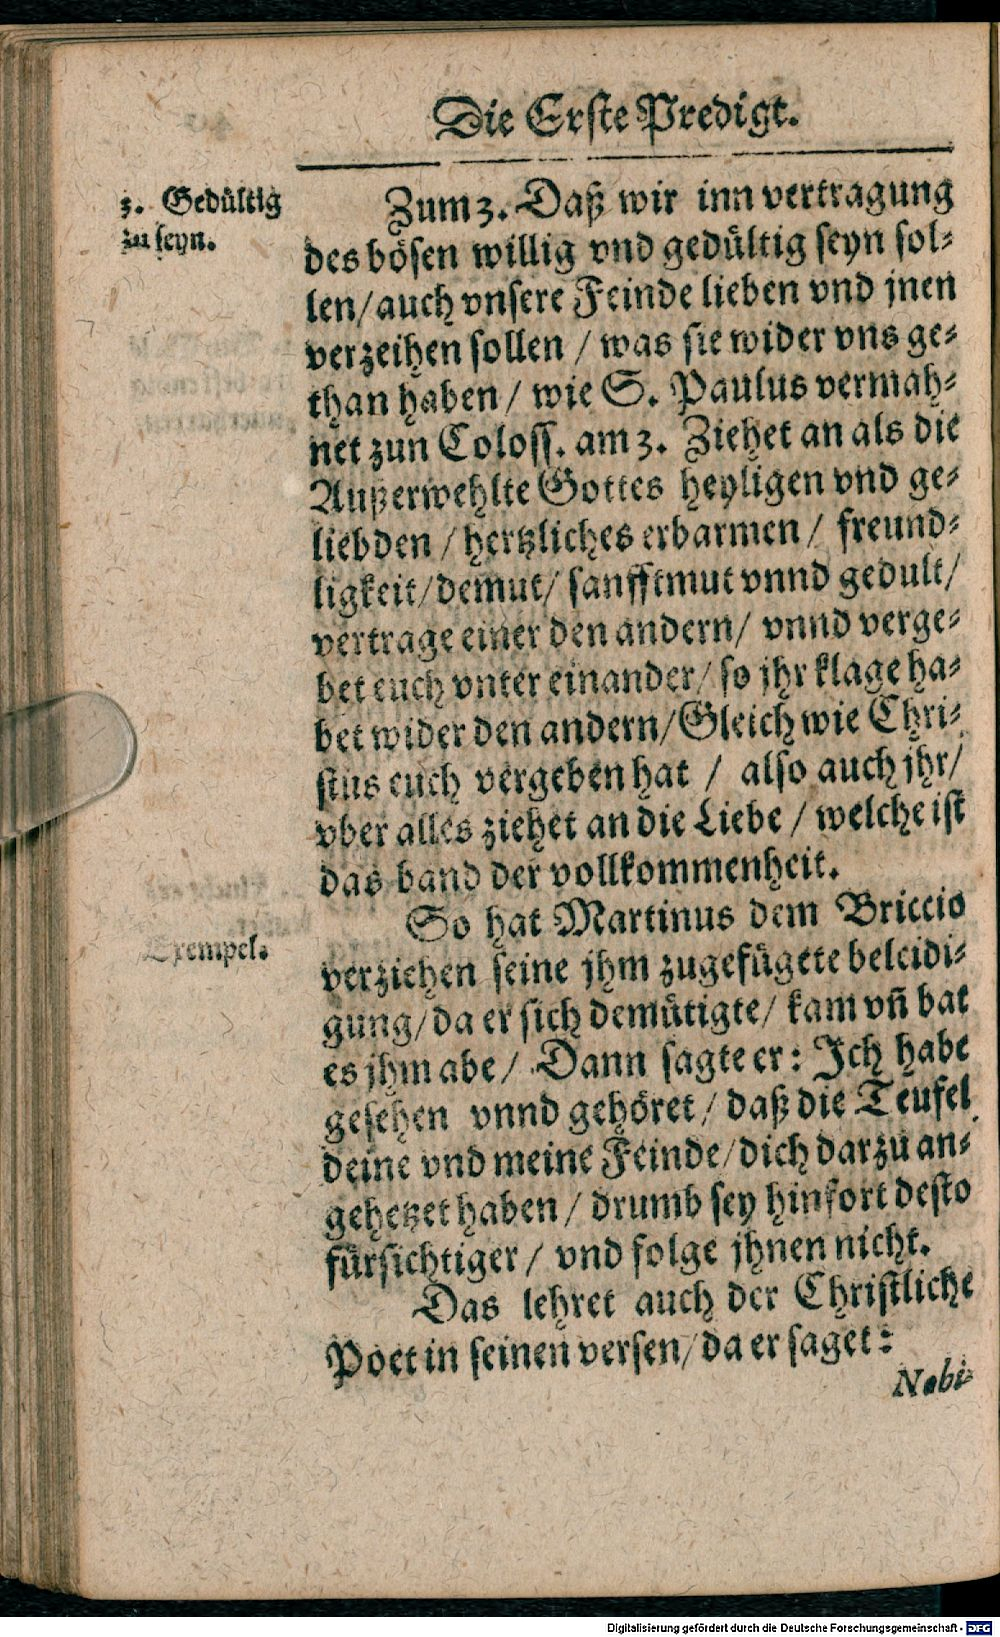 Die Erste Predigt.
3. Gedültig
zu seyn.
Zum 3. Daß wir inn vertragung
des bösen willig vnd gedültig seyn sol-
len/ auch vnsere Feinde lieben vnd jnen
verzeihen sollen / was sie wider vns ge-
than haben / wie S. Paulus vermah-
net zun Coloss. am 3. Ziehet an als die
Außerwehlte Gottes heyligen vnd ge-
liebden / hertzliches erbarmen / freund-
ligkeit/ demut/ sanfftmut vnnd gedult/
vertrage einer den andern/ vnnd verge-
bet euch vnter einander/ so jhr klage ha-
bet wider den andern/ Gleich wie Chri-
stus euch vergeben hat / also auch jhr/
vber alles ziehet an die Liebe / welche ist
das band der vollkommenheit.
Exempel.
So hat Martinus dem Briccio
verziehen seine jhm zugefügete beleidi-
gung/ da er sich demütigte/ kam vñ bat
es jhm abe / Dann sagte er: Ich habe
gesehen vnnd gehöret / daß die Teufel
deine vnd meine Feinde/ dich darzu an-
gehetzet haben / drumb sey hinfort desto
fürsichtiger / vnd folge jhnen nicht.
Das lehret auch der Christliche
Poet in seinen versen/ da er saget:
Nobi-
Digitalisierung gefördert durch die Deutsche Forschungsgemeinschaft - DFG